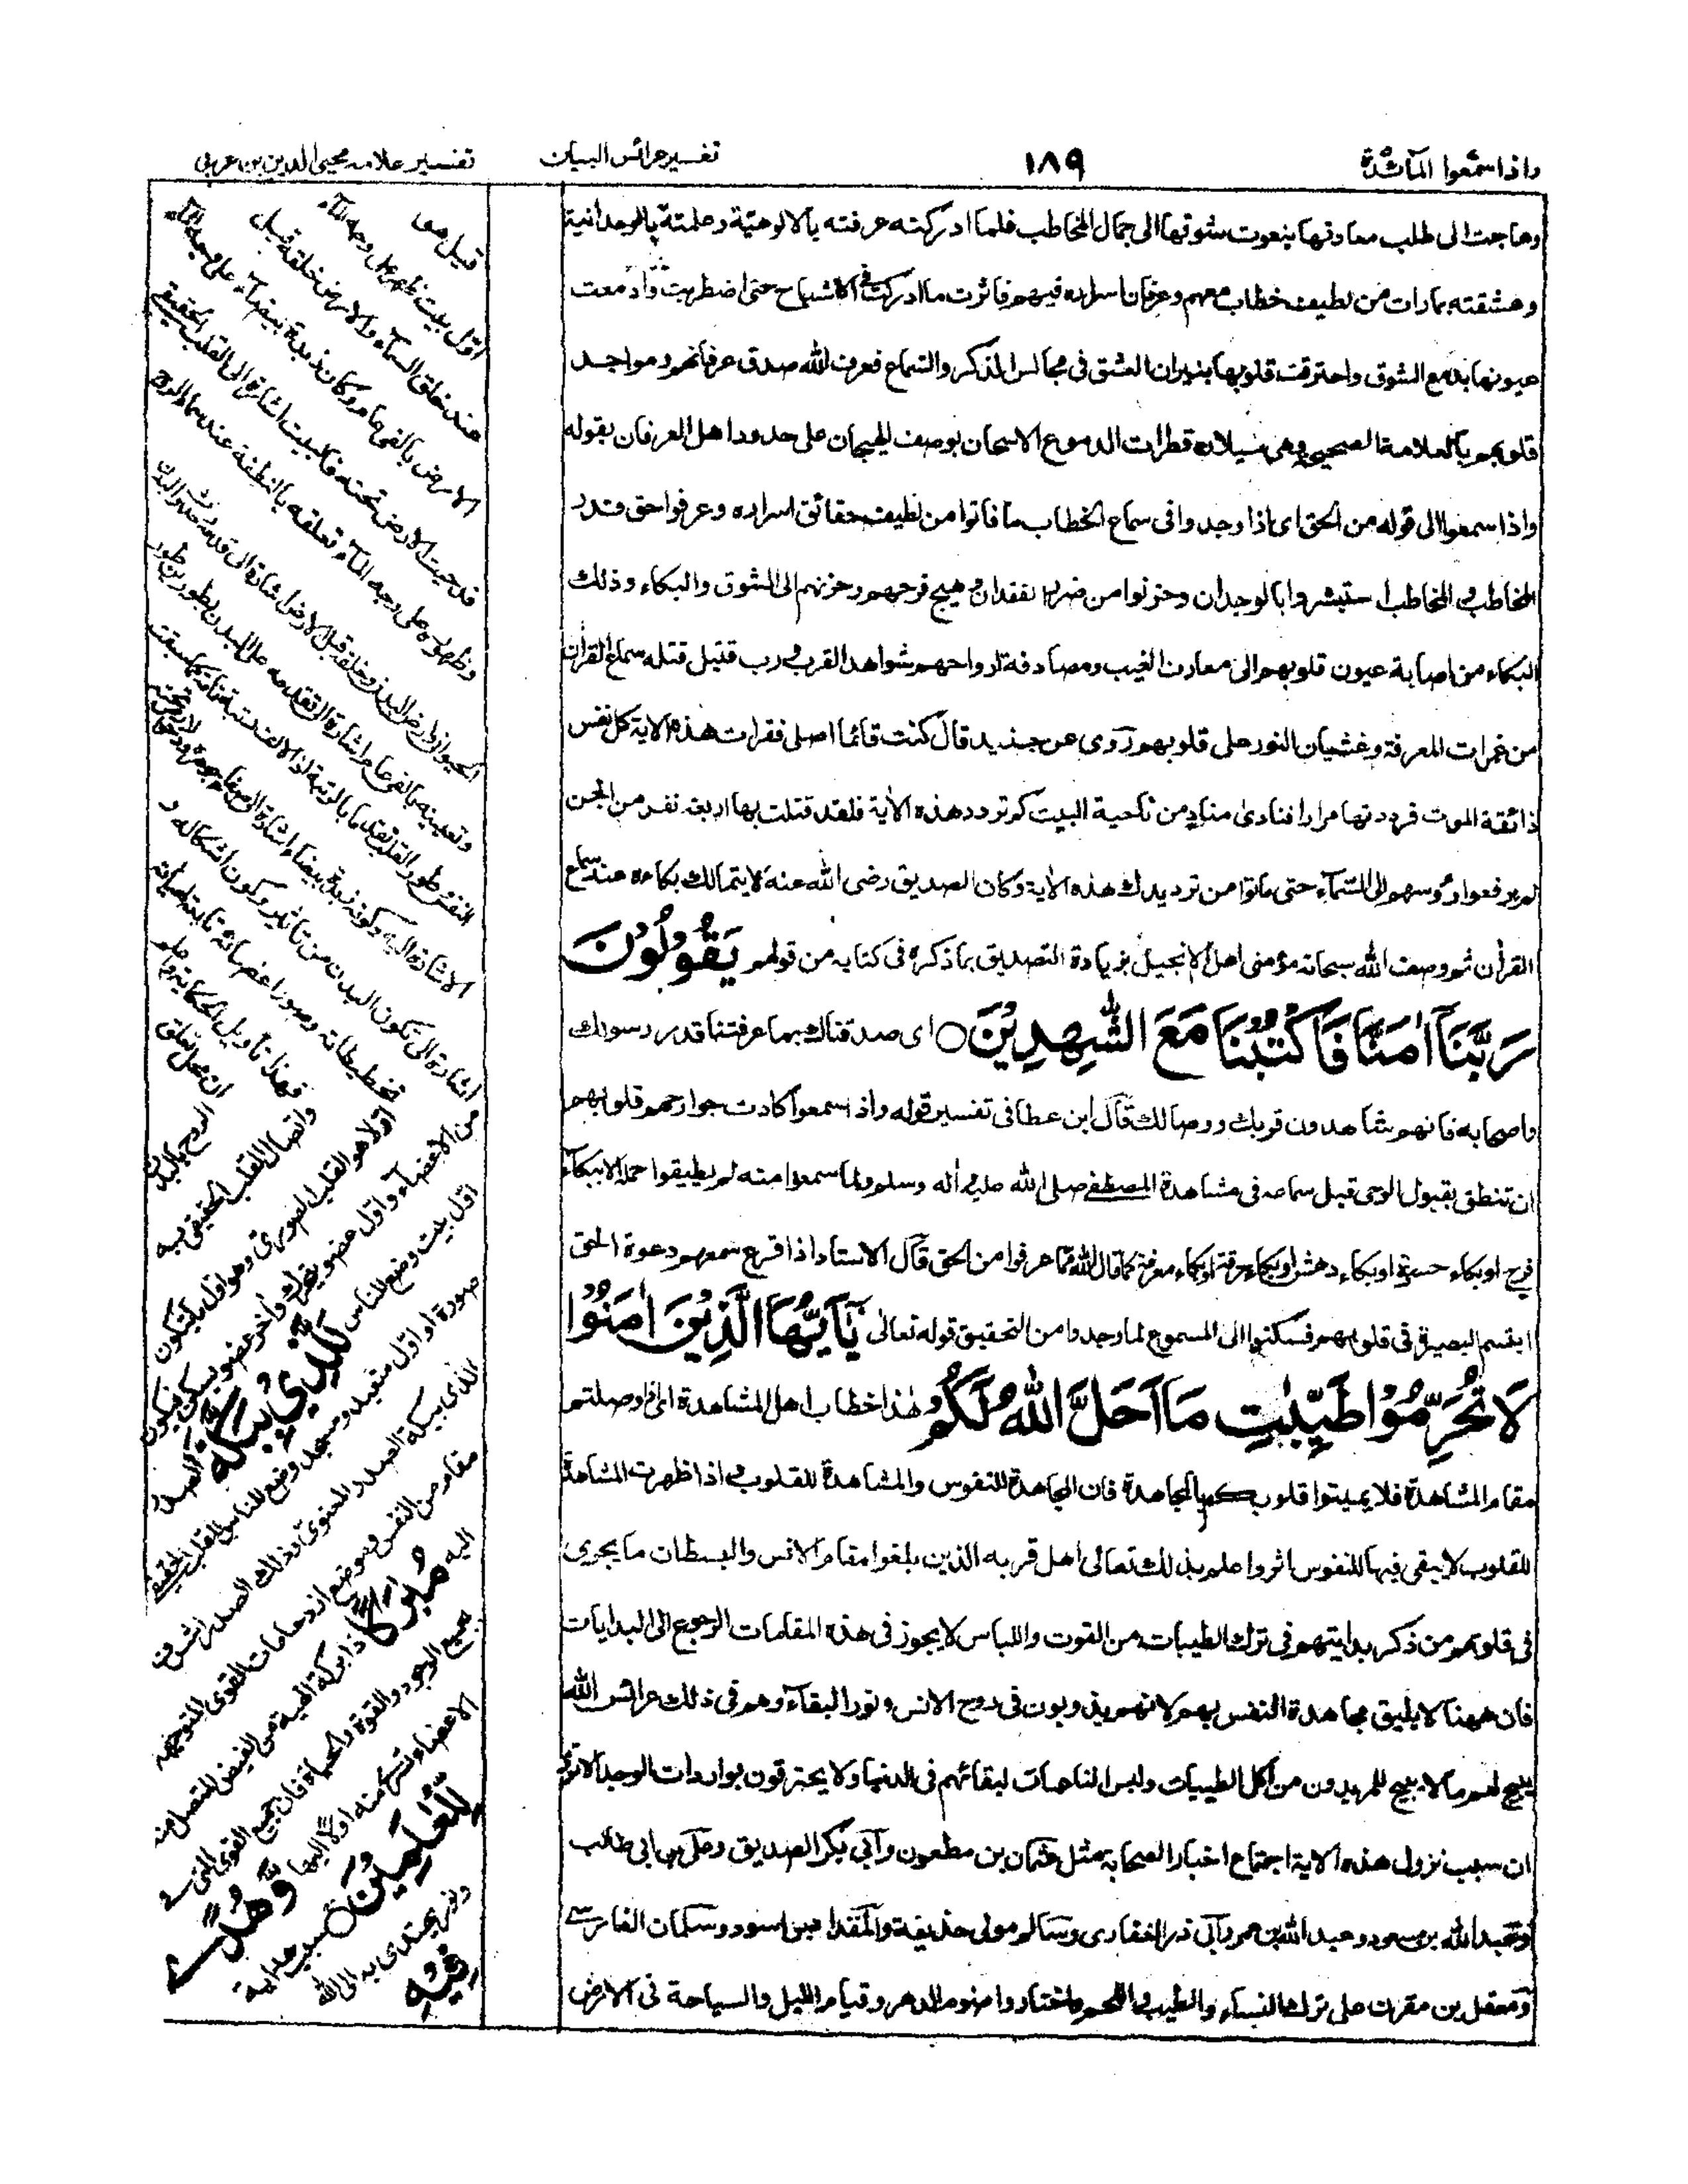 واذا سمعوا المآئدة
١٨٩
تفسير عرائس البيان
تفسير علامه محيى الدين بن عربى
وهاجت الى طلب معادنها بنعوت شوقها الى جمال المخاطب فلما ادركته عرفته بالالوهيّة وعلمته بالوحدانية
وعشقته بما رات من لطيف خطاب معهم وعرفان اسراره فيهم فاثرت ما ادركت فى الاشباح حتى اضطربت وادمعت
عيونها بدمع الشوق واحترقت قلوبها بنيران العشق فى مجالس الذكر والسماع فعرف الله صدق عرفانهم ومواجد
قلوبهم بالعلامة الصحيحة وهى سيلان قطرات الدموع الاسجان بوصف الهيجان على حدود اهل العرفان بقوله
واذا سمعوا الى قوله من الحق اى اذا وجدوا فى سماع الخطاب ما فاتوا من لطيف حقائق اسراره وعرفوا حق قدر
المخاطب والمخاطب استبشروا بالوجدان وحزنوا من ضرر نفقدان وهيج فرحهم وحزنهم الى الشوق والبكاء وذلك
البكاء من اصابة عيون قلوبهم الى معادن الغيب ومصادفة ارواحهم شواهد القرب ورب قتيل قتله سماع القرآن
من غمرات المعرفة وغشيان النور على قلوبهم روى عن جنيد قال كنت قائما اصلى فقرات هذه الاية كل نفس
ذائقة الموت فرددتها مرارا فنادى مناد من ناحية البيت كم تردد هذه الاية فلقد قتلت بها اربعة نفر من الجن
لم يرفعوا رؤسهم الى السّمآء حتى ماتوا من ترديدك هذه الاية وكان الصديق رضى الله عنه لا يتمالك بكاءه عند سماع
القران ثم وصف الله سبحانه مؤمنى اهل الانجيل بزيادة التصديق بما ذكره فى كتابه من قولهم يَقُوْلُوْنَ
رَبَّنَآ اٰمَنَّا فَاكْتُبْنَا مَعَ الشّٰهِدِيْنَ ○ اى صدقناك بما عرفتنا قدر رسولك
واصحابه فانهم شاهدون قربك ووصالك قال ابن عطا فى تفسير قوله واذا سمعوا كادت جوارحهم قلوبهم
ان تنطق بقبول الوحى قبل سماعه فى مشاهدة المصطفے صلى الله عليه وأله وسلم ولما سمعوا منه لم يطيقوا حمله الا ببكآء
فرح او بكاء حسرة او بكاء دهش او بكاء حرقة او بكاء معرفة كما قال الله مما عرفوا من الحق قال الاستاد اذا قرع سمعهم دعوة الحق
ابتسم البصيرة فى قلوبهم فسكنوا الى المسموع لما وجدوا من التحقيق قوله تعالى يٰٓاَيُّهَا الَّذِيْنَ اٰمَنُوْا
لَا تُحَرِّمُوْا طَيِّبٰتِ مَآ اَحَلَّ اللّٰهُ لَكُمْ هذا خطاب اهل المشاهدة اى اذا وصلتم
مقام المشاهدة فلا يميتوا قلوبكم بالمجاهدة فان المجاهدة للنفوس والمشاهدة للقلوب واذا ظهرت المشاهدة
للقلوب لا يبقى فيها للنفوس اثر واعلم بذلك تعالى اهل قربه الذين بلغوا مقام الانس والبسط ان ما يجرى
فى قلوبهم من ذكر بدايتهم فى ترك الطيبات من القوت واللباس لا يجوز فى هذه المقامات الرجوع الى البدايات
فان ههنا لا يليق مجاهدة النفس بهم لانهم يذوبون فى روح الانس ونور البقآء وهم فى ذلك عرائس الله
يبيح لهم ما لا يبيح للمريدون من اكل الطيبات ولبس الناعمات لبقائهم فى الدنيا ولا يحترقون بواردات الوجد الا ترى
ان سبب نزول هذه الاية اجتماع اخيار الصحابه مثل عثمان بن مظعون وابى بكر الصديق وعلى بن ابى طالب
وعبد الله بن مسعود وعبد الله بن عمر وابى ذر الغفارى وسالم مولى حذيفة والمقداد بن اسود وسلمان الفارسے
ومعقل بن مقرن على ترك النساء والطيب واللحم واختاروا صوم الدهر وقيام الليل والسياحة فى الارض
قيل هو
اوّل بيت ظهر على وجه المآء
عند خلق السمآء والارض خلقه قبل
الارض بالفى عام وكان زبدة بيضآء على وجه المآء
فدحيت الارض تحته فالبيت اشارة الى القلب الحقيقى
وظهوره على وجه المآء تعلقه بالنطفة عند سماء الروح
الاشارة اليه وكونه زبدة بيضاء اشارة الى صفاء جوهره
اشارة الى تكون البدن من تاثيره وكون اشكاله و
تخطيطاته وصور اعضائه تابعة لهيئاته
فهذا تاويل الحكاية واعلم
ان محل تعلق
الروح بالبدن
واتصال القلب الحقيقى به
اولا هو القلب الصورى وهو اول ما يتكون
من الاعضآء واول عضو يتحرك واخر عضو يسكن فيكون
اول بيت وضع للناس لَلَّذِيْ بِبَكَّةَ الصدر
صورة او اول متعبد ومسجد وضع للناس القلب الحقيقى
الذى ببكة الصدر المعنوى وذلك الصدر اشرف
مقام من النفس وموضع ازدحامات القوى المتوجهة
اليه مُبٰرَكًا ذا بركة الهية من الفيض المتصل منه
بجميع الوجود والقوة والحياة فان جميع القوى التى فے
الاعضاء تسرى منه اولا اليها وَّهُدًے
لِّلْعٰلَمِيْنَ ○ سبب هداية
ونور يهتدى به الى الله
فِيْهِ